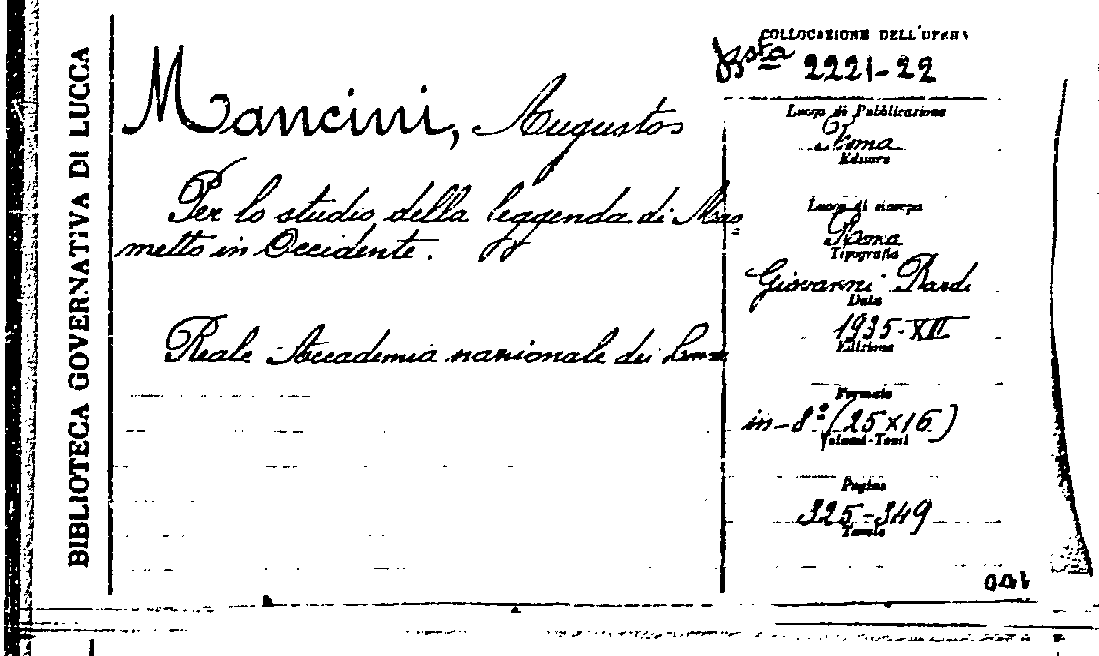 BIBLIOTECA GOVERNATIVA DI LUCCA
Mancini, Augusto
Per lo studio della leggenda di Mao
metto in Occidente.
Reale Accademia nazionale dei
COLLOCAZIONE DELL'OPERA
Bsta 2221-22
Luogo di Pubblicazione
Roma
Editore
Luogo di stampa
Roma
Tipografia
Giovanni Bardi
Data
1935-XIII
Edizione
Formato
in-8º (25×16)
Volumi-Tomi
Pagine
325-349
Tavole